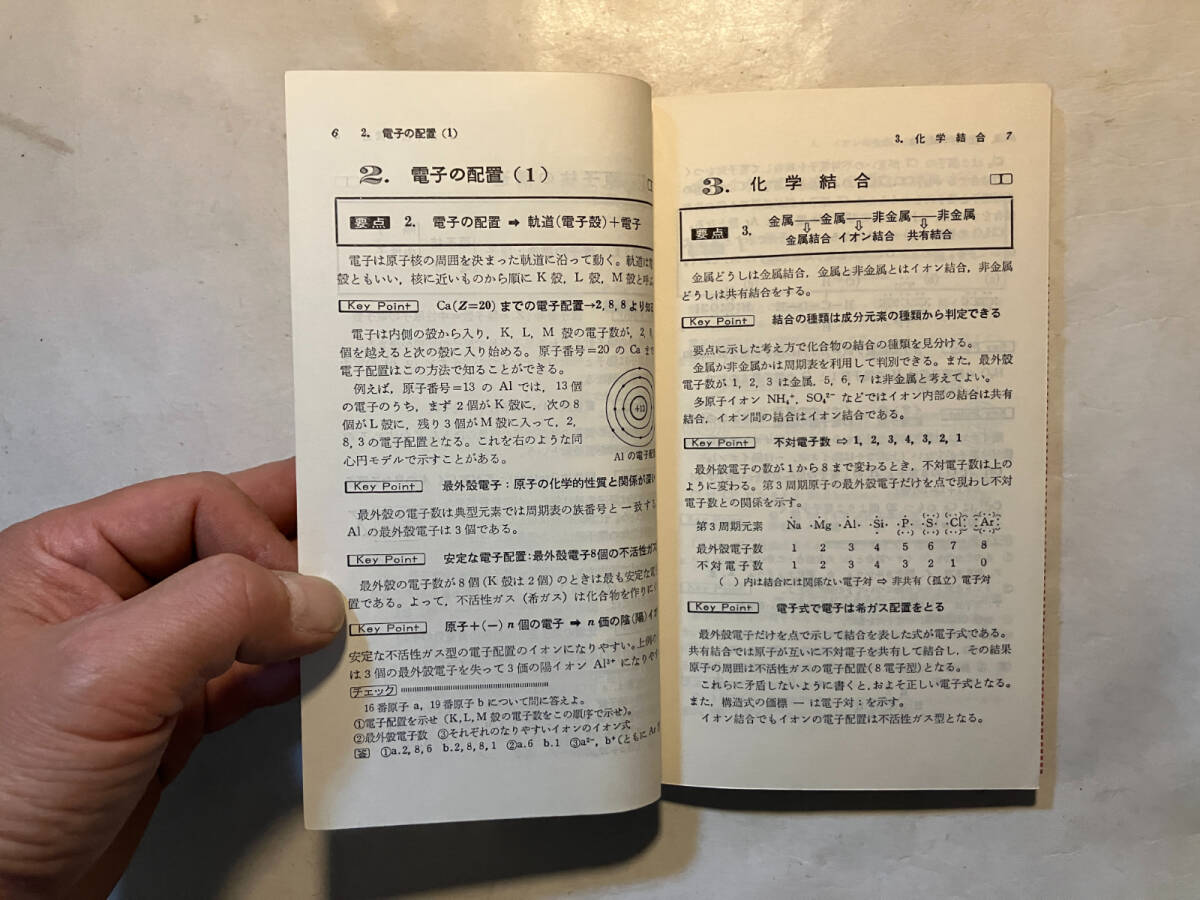 6 2. 電子の配置(1)
2. 電子の配置(1)
要点 2. 電子の配置 ➡ 軌道(電子殻)+電子
電子は原子核の周囲を決まった軌道に沿って動く。軌道は
殻ともいい,核に近いものから順に K 殻,L 殻,M 殻と呼
Key Point Ca(Z=20) までの電子配置→2, 8, 8 より知
電子は内側の殻から入り,K, L, M 殻の電子数が,2,
個を越えると次の殻に入り始める。原子番号=20 の Ca ま
電子配置はこの方法で知ることができる。
例えば,原子番号=13 の Al では,13個
の電子のうち,まず 2 個が K 殻に,次の 8
個が L 殻に,残り 3 個が M 殻に入って,2,
8, 3 の電子配置となる。これを右のような同
心円モデルで示すことがある。
+13
Al の電子配
Key Point 最外殻電子:原子の化学的性質と関係が深
最外殻の電子数は典型元素では周期表の族番号と一致する
Al の最外殻電子は 3 個である。
Key Point 安定な電子配置:最外殻電子8個の不活性ガス
最外殻の電子数が 8 個 (K 殻は 2 個) のときは最も安定な
置である。よって,不活性ガス(希ガス)は化合物を作りに
Key Point 原子+(−) n 個の電子 ➡ n 価の陰(陽)イ
安定な不活性ガス型の電子配置のイオンになりやすい。上例の
は 3 個の最外殻電子を失って 3 価の陽イオン Al³⁺ になりや
チェック
16番原子 a,19番原子 b について問に答えよ。
①電子配置を示せ (K, L, M 殻の電子数をこの順序で示せ)。
②最外殻電子数 ③それぞれのなりやすいイオンのイオン式
答 ①a. 2, 8, 6 b. 2, 8, 8, 1 ②a. 6 b. 1 ③a²⁻, b⁺(ともに Ar
3. 化学結合 7
3. 化学結合
要点 3. 金属—金属—非金属—非金属
⇩ ⇩ ⇩
金属結合 イオン結合 共有結合
金属どうしは金属結合,金属と非金属とはイオン結合,非金属
どうしは共有結合をする。
Key Point 結合の種類は成分元素の種類から判定できる
要点に示した考え方で化合物の結合の種類を見分ける。
金属か非金属かは周期表を利用して判別できる。また,最外殻
電子数が 1, 2, 3 は金属,5, 6, 7 は非金属と考えてよい。
多原子イオン NH₄⁺, SO₄²⁻ などではイオン内部の結合は共有
結合,イオン間の結合はイオン結合である。
Key Point 不対電子数 ⇨ 1, 2, 3, 4, 3, 2, 1
最外殻電子の数が 1 から 8 まで変わるとき,不対電子数は上の
ように変わる。第 3 周期原子の最外殻電子だけを点で現わし不対
電子数との関係を示す。
第3周期元素 Na ·Mg ·Al· ·Si· ·P· ·S· Cl· Ar
最外殻電子数 1 2 3 4 5 6 7 8
不対電子数 1 2 3 4 3 2 1 0
( )内は結合には関係ない電子対 ⇨ 非共有(孤立)電子対
Key Point 電子式で電子は希ガス配置をとる
最外殻電子だけを点で示して結合を表した式が電子式である。
共有結合では原子が互いに不対電子を共有して結合し,その結果
原子の周囲は不活性ガスの電子配置(8 電子型)となる。
これらに矛盾しないように書くと,およそ正しい電子式となる。
また,構造式の価標 — は電子対 : を示す。
イオン結合でもイオンの電子配置は不活性ガス型となる。